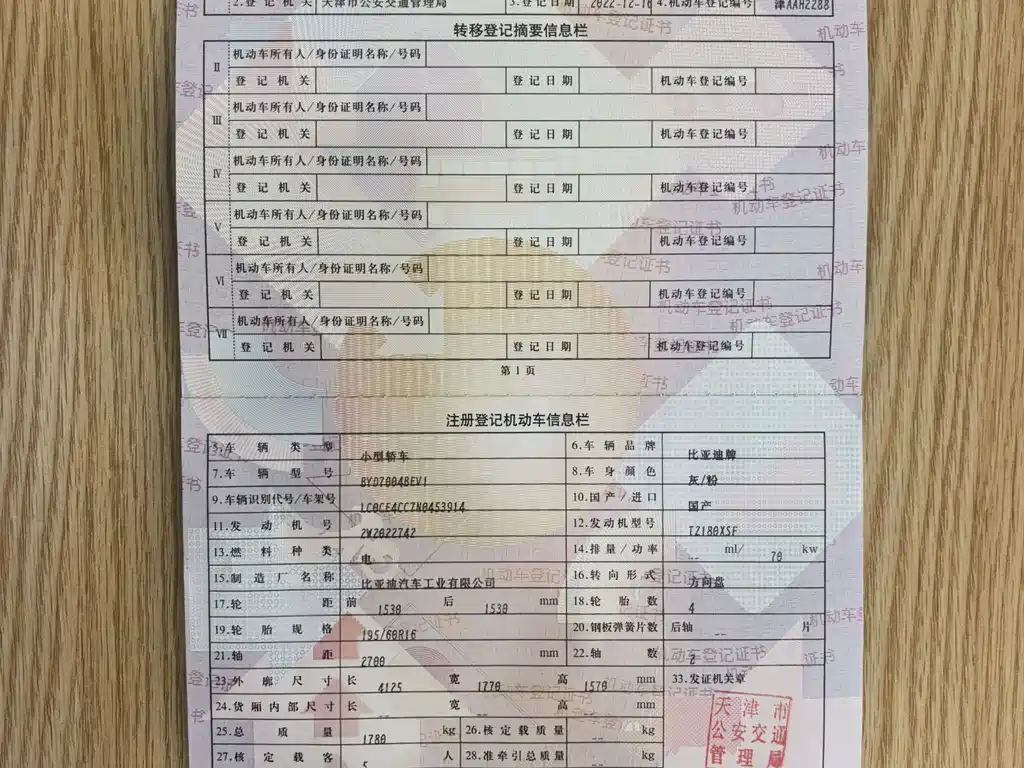 2.登记机关 天津市公安交通管理局 3.登记日期 2022-12-16 4.机动车登记编号 津AAH2288
转移登记摘要信息栏
Ⅱ 机动车所有人/身份证明名称/号码
登记机关 登记日期 机动车登记编号
Ⅲ 机动车所有人/身份证明名称/号码
登记机关 登记日期 机动车登记编号
Ⅳ 机动车所有人/身份证明名称/号码
登记机关 登记日期 机动车登记编号
Ⅴ 机动车所有人/身份证明名称/号码
登记机关 登记日期 机动车登记编号
Ⅵ 机动车所有人/身份证明名称/号码
登记机关 登记日期 机动车登记编号
Ⅶ 机动车所有人/身份证明名称/号码
登记机关 登记日期 机动车登记编号
第1页
注册登记机动车信息栏
5.车辆类型 小型轿车 6.车辆品牌 比亚迪牌
7.车辆型号 BYD7004BEV1 8.车身颜色 灰/粉
9.车辆识别代号/车架号 LC0CE4CC7N0453914 10.国产/进口 国产
11.发动机号 2W2022742 12.发动机型号 TZ180XSF
13.燃料种类 电 14.排量/功率 -- ml/ 70 kw
15.制造厂名称 比亚迪汽车工业有限公司 16.转向形式 方向盘
17.轮距 前 1530 后 1530 mm 18.轮胎数 4
19.轮胎规格 195/60R16 20.钢板弹簧片数 后轴 -- 片
21.轴距 2700 mm 22.轴数 2
23.外廓尺寸 长 4125 宽 1770 高 1570 mm 33.发证机关章
24.货厢内部尺寸 长 -- 宽 -- 高 -- mm
25.总质量 1780 kg 26.核定载质量 -- kg
27.核定载客 5 人 28.准牵引总质量 -- kg
天津市
公安交通
管理局